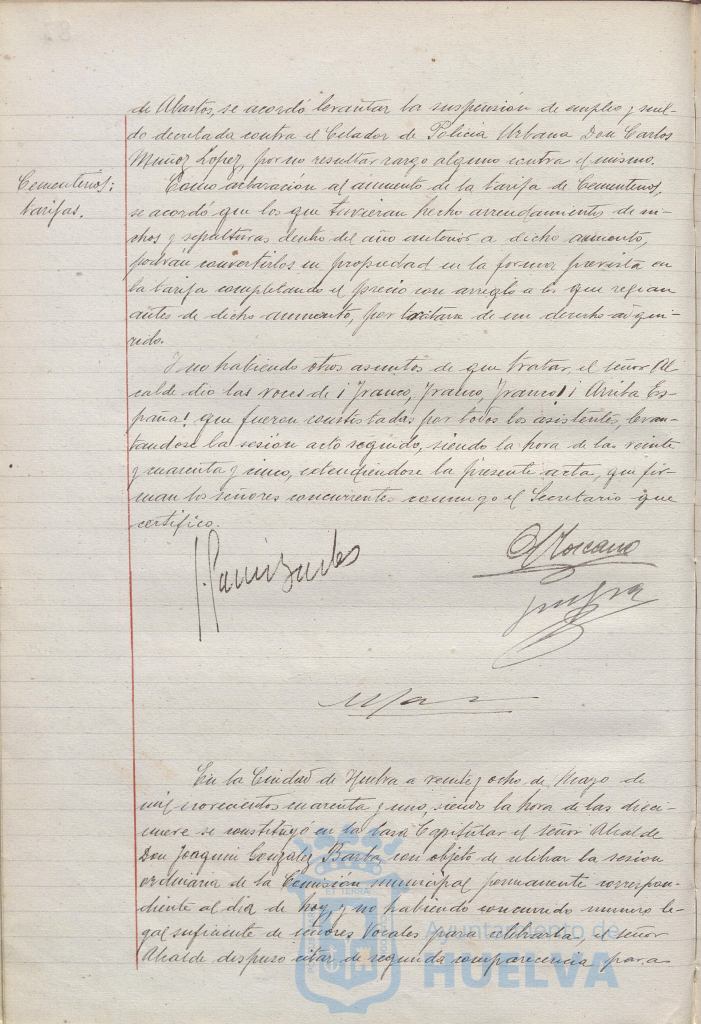 de Abastos, se acordó levantar la suspensión de empleo y suel-
do decretada contra el Celador de Policía Urbana Don Carlos
Muñoz Lopez, por no resultar cargo alguno contra el mismo.
Cementerios;
tarifas.
Como aclaración al aumento de la tarifa de Cementerios,
se acordó que los que tuvieran hecho arrendamientos de ni-
chos y sepulturas dentro del año anterior a dicho aumento,
podrán convertirlos en propiedad en la forma prevista en
la tarifa completando el precio con arreglo a los que regian
antes de dicho aumento, por tratarse de un derecho adqui-
rido.
Y no habiendo otros asuntos de que tratar, el señor Al
calde dio las voces de ¡Franco, Franco, Franco! ¡Arriba Es-
paña! que fueron contestadas por todos los asistentes, levan-
tandose la sesión acto seguido, siendo la hora de las veinte
y cuarenta y cinco, extendiéndose la presente acta, que fir-
man los señores concurrentes conmigo el Secretario que
certifico.
Toscano
En la Ciudad de Huelva a veintiocho de Mayo de
mil novecientos cuarenta y uno, siendo la hora de las dieci-
nueve se constituyó en la Casa Capitular el señor Alcalde
Don Joaquin González Barba, con objeto de celebrar la sesion
ordinaria de la Comisión municipal permanente correspon-
diente al dia de hoy, y no habiendo concurrido numero le-
gal suficiente de señores Vocales para celebrarla, el señor
Alcalde dispuso citar de segunda comparecencia para
Ayuntamiento de
HUELVA